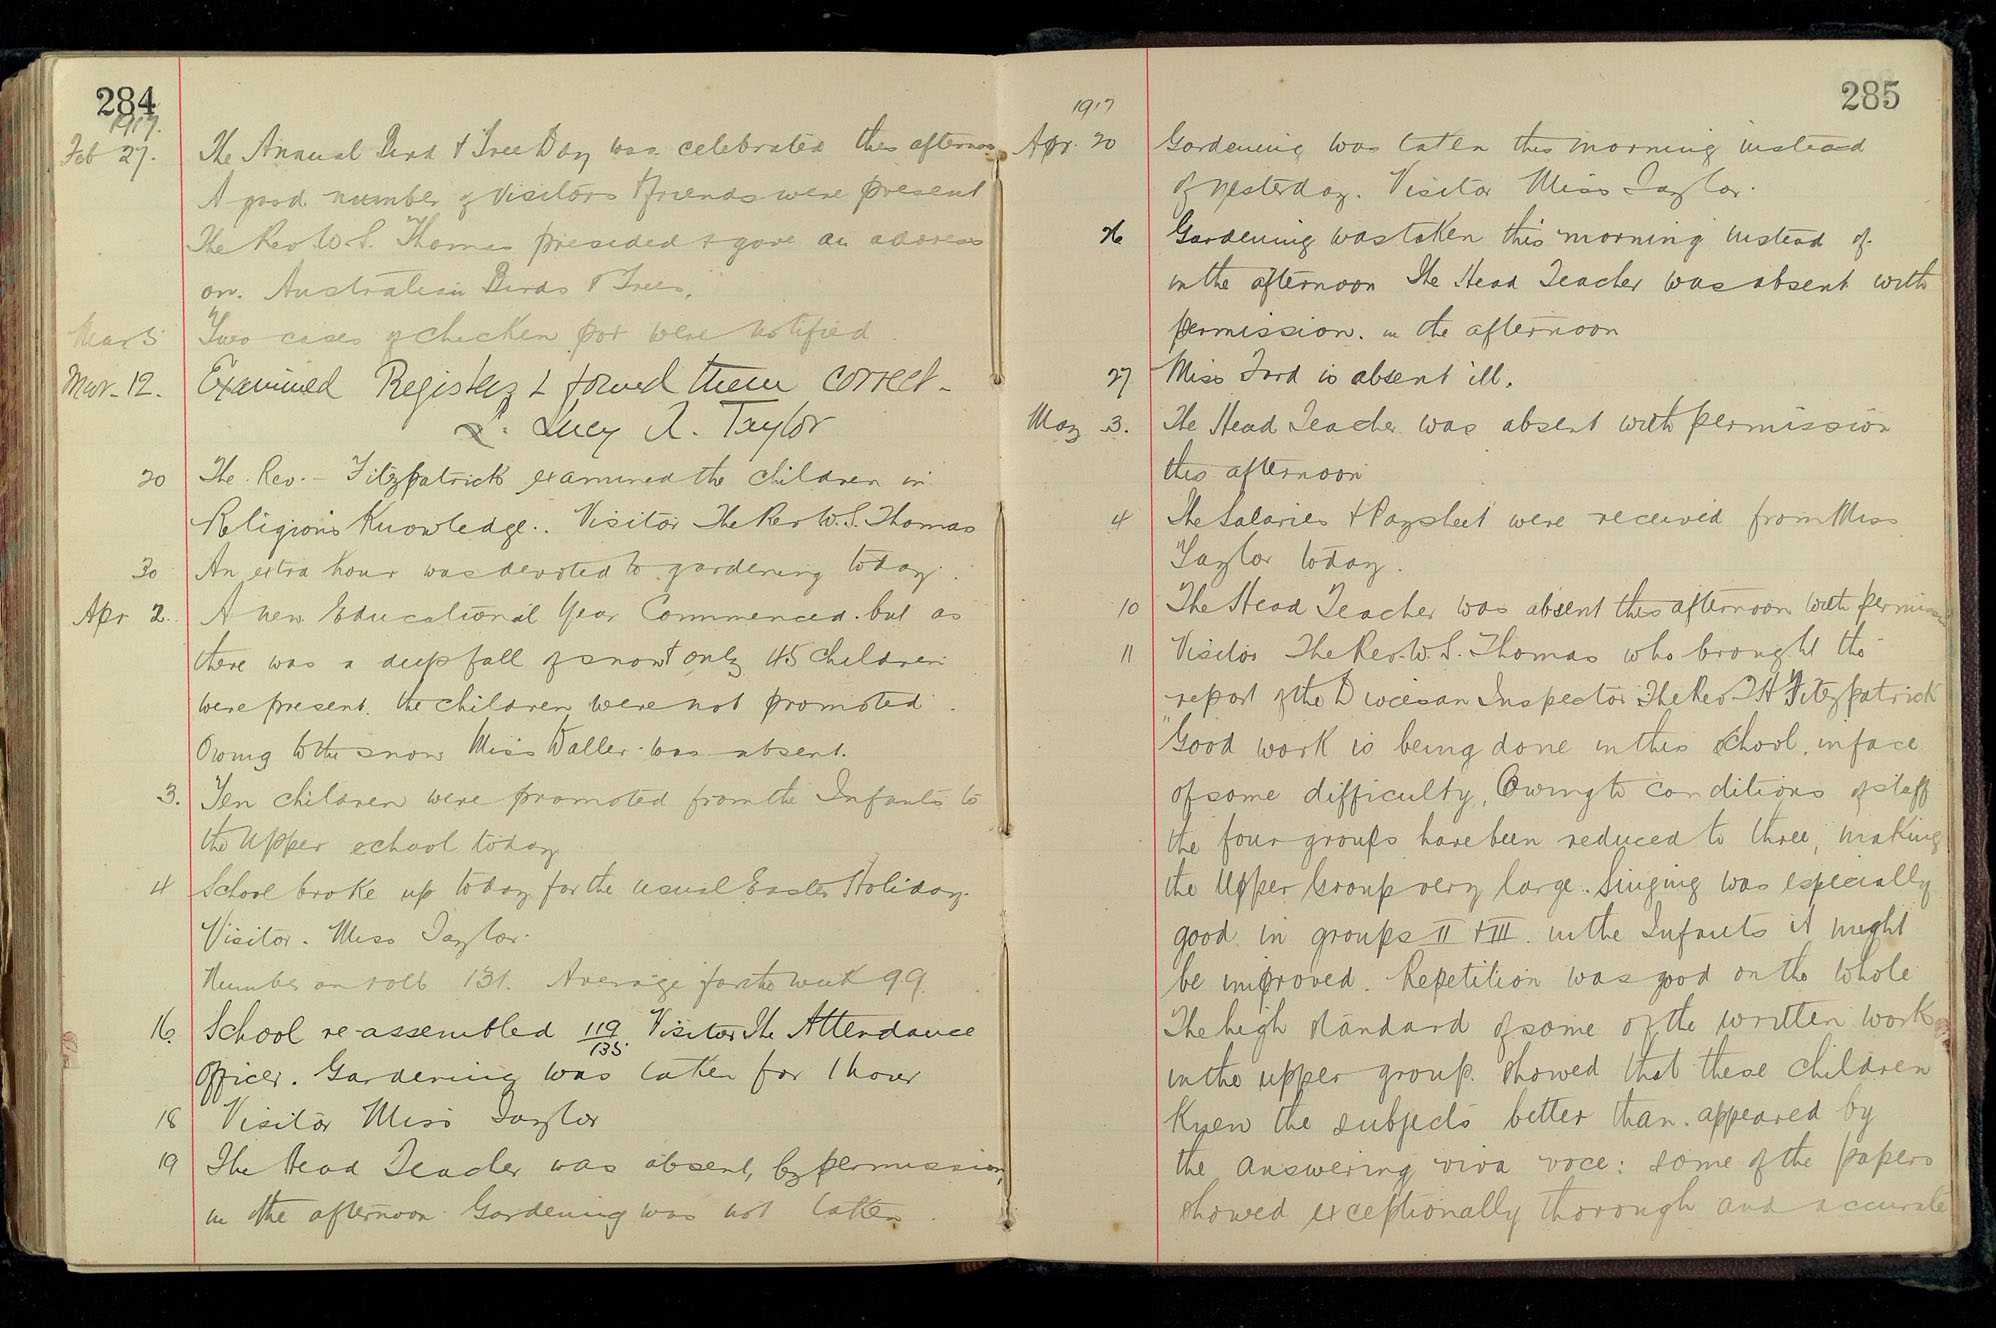 284
1917.
Feb 27. The Annual Bird & Tree Day was celebrated this afternoon
A good number of Visitors & friends were present
The Rev. W. S. Thomas presided & gave an address
on. Australian Birds & Trees.
Mar 5 Two cases of chicken pox were notified.
Mar. 12. Examined Registers & found them correct -
Lucy A. Taylor
20 The Rev. - Fitzpatrick examined the children in
Religious Knowledge. Visitor The Rev W. S. Thomas
30 An extra hour was devoted to gardening today.
Apr 2. A new Educational Year Commenced. but as
there was a deep fall of snow & only 45 children
were present. the children were not promoted.
Owing to the snow Miss Waller was absent.
3. Ten children were promoted from the Infants to
the Upper school today
4 School broke up today for the usual Easter Holiday.
Visitor. Miss Taylor.
Number on roll 131. Average for the week 99.
16. School re-assembled 119/135. Visitor The Attendance
Officer. Gardening was taken for 1 hour
18 Visitor Miss Taylor
19 The Head Teacher was absent, by permission,
in the afternoon. Gardening was not taken.
285
1917
Apr. 20 Gardening was taken this morning instead
of yesterday. Visitor Miss Taylor.
26 Gardening was taken this morning instead of
in the afternoon The Head Teacher was absent with
permission. in the afternoon
27 Miss Ford is absent ill.
May 3. The Head Teacher was absent with permission
this afternoon
4 The Salaries & Paysheet were received from Miss
Taylor today.
10 The Head Teacher was absent this afternoon with permission
11 Visitor The Rev. W. S. Thomas who brought the
report of the Diocesan Inspector The Rev T H Fitzpatrick
"Good work is being done in this school, in face
of some difficulty, Owing to conditions of staff
the four groups have been reduced to three, making
the Upper Group very large. Singing was especially
good in groups II & III. in the Infants it might
be improved. Repetition was good on the whole
The high standard of some of the written work
in the upper group. showed that these children
knew the subjects better than. appeared by
the answering viva voce: some of the papers
showed exceptionally thorough and accurate